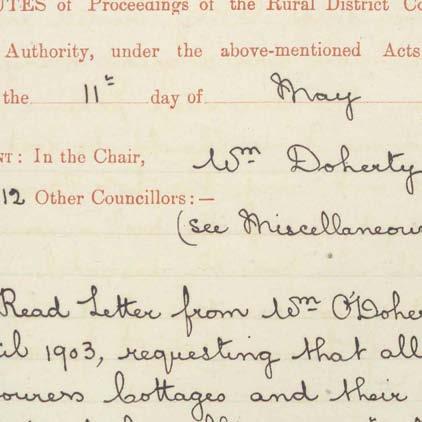 UTES of Proceedings of the Rural District Co
Authority, under the above-mentioned Acts
the 11th day of May
NT: In the Chair, Wm Doherty
12 Other Councillors:—
(see Miscellaneou
Read Letter from Wm O'Doher
il 1903, requesting that all
ourers Cottages and their